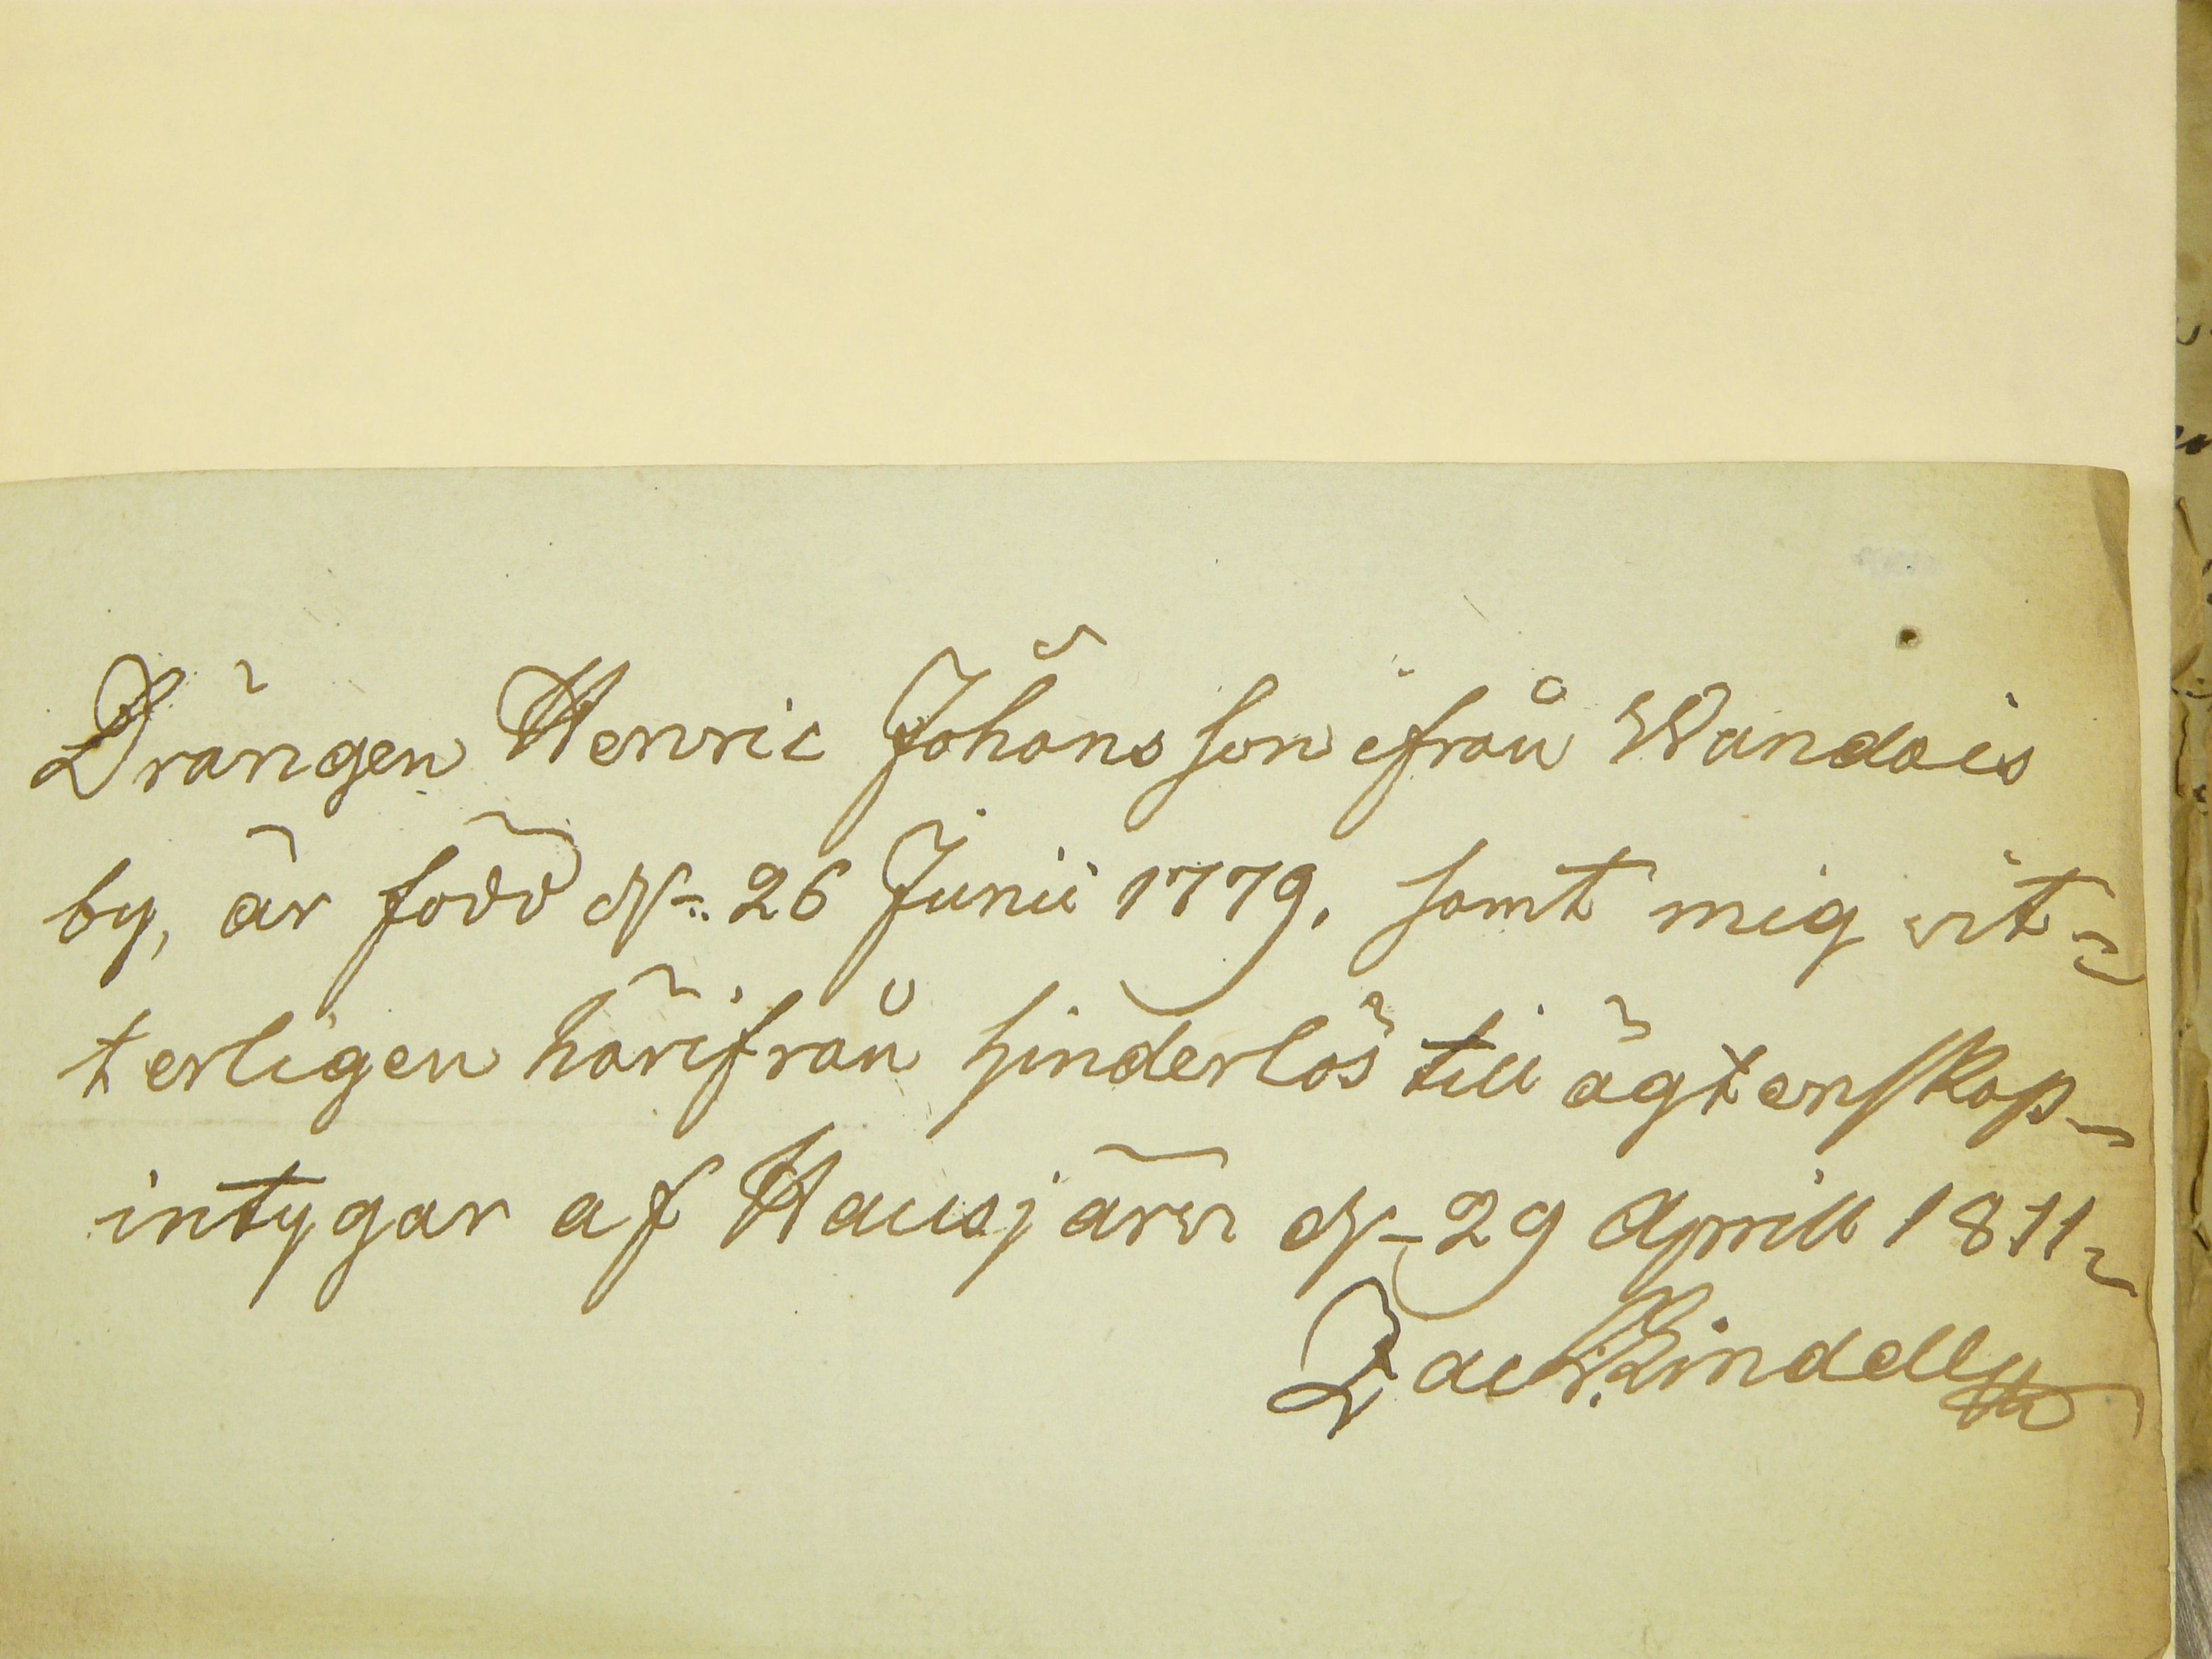 Drängen Henric Johansson ifrån Wandais
by, är född d. 26 Junii 1779, samt mig vit=
terligen härifrån hinderlös till ägtenskap
intygar af Hausjärvi d. 29 Aprill 1811
Lindell